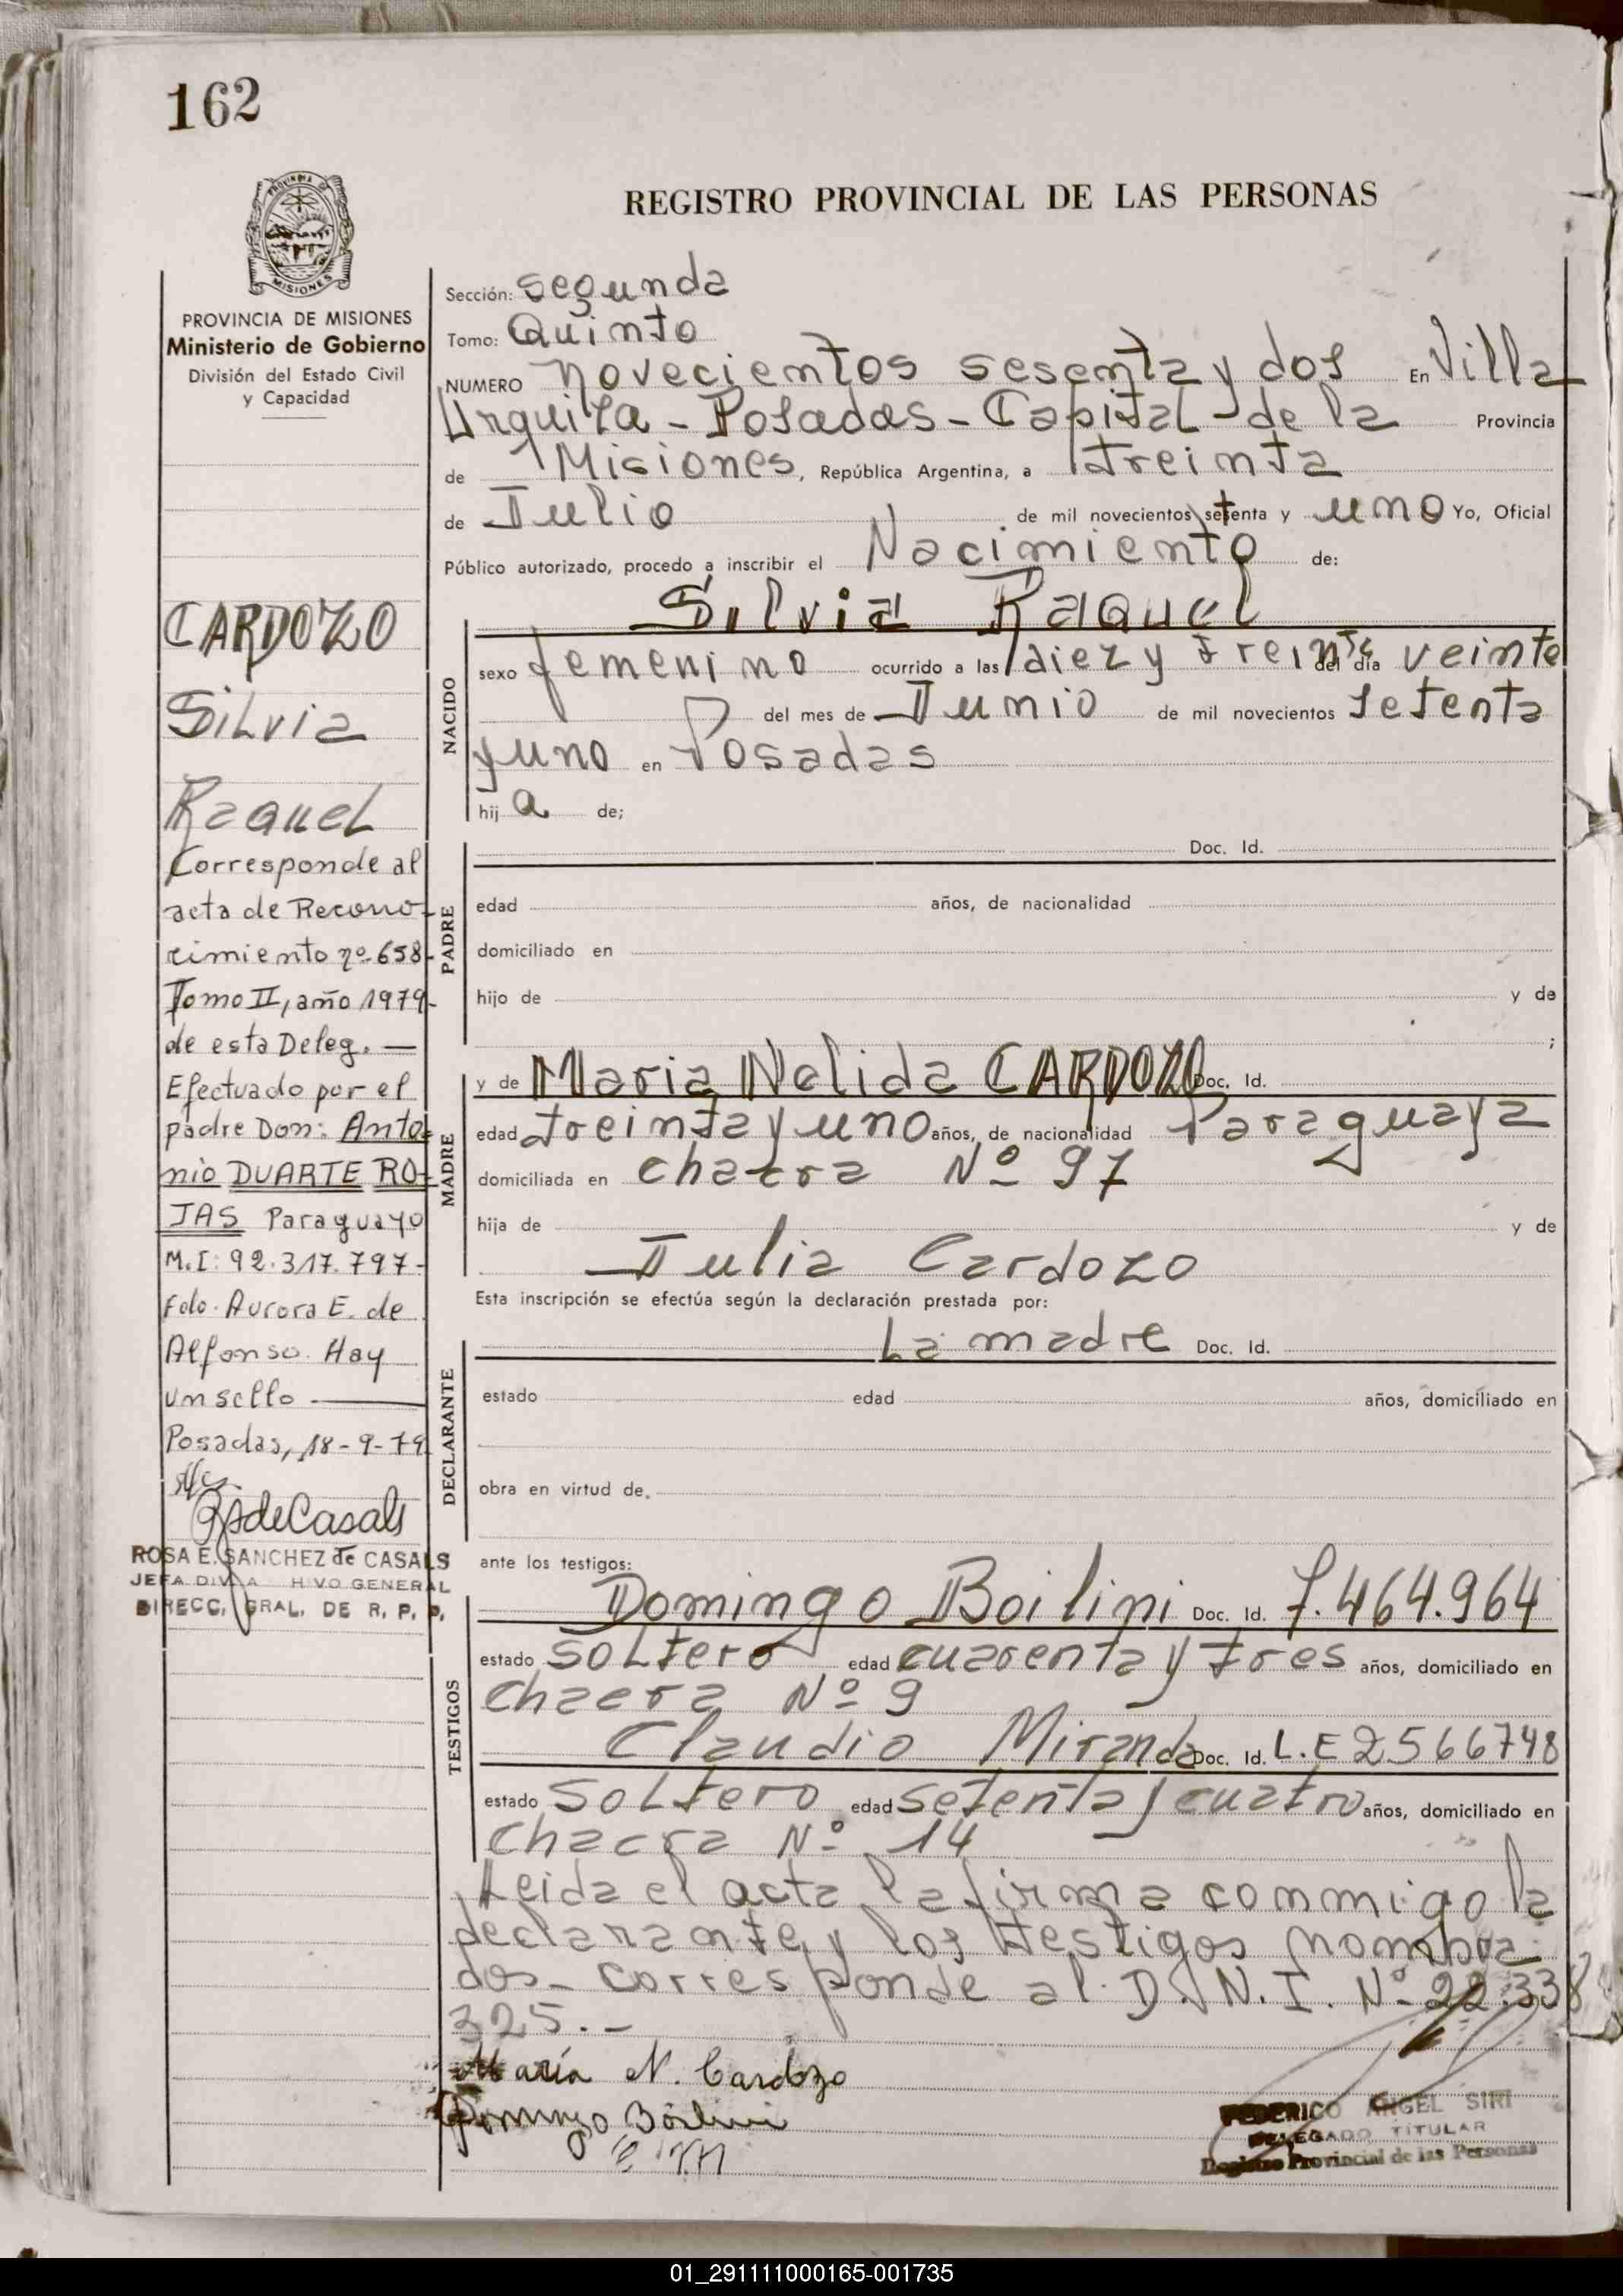 162
PROVINCIA DE
MISIONES
REGISTRO PROVINCIAL DE LAS PERSONAS
PROVINCIA DE MISIONES
Ministerio de Gobierno
División del Estado Civil
y Capacidad
CARDOZO
Silvia
Raquel
Corresponde al
acta de Recono
cimiento nº 658-
Tomo II, año 1979-
de esta Deleg. —
Efectuado por el
padre Don: Anto-
nio DUARTE RO-
JAS Paraguayo
M.I: 92.317.797-
Fdo. Aurora E. de
Alfonso. Hay
un sello —
Posadas, 18-9-79
RSdeCasals
ROSA E. SANCHEZ de CASALS
JEFA DIV. A HIVO GENERAL
DIRECC. GRAL. DE R. P. P.
Sección: Segunda
Tomo: Quinto
NUMERO novecientos sesenta y dos En Villa
Urquiza - Posadas - Capital de la Provincia
de Misiones, República Argentina, a treinta
de Julio de mil novecientos setenta y uno Yo, Oficial
Público autorizado, procedo a inscribir el Nacimiento de:
NACIDO
Silvia Raquel
sexo femenino ocurrido a las diez y treinta del día veinte
del mes de Junio de mil novecientos setenta
y uno en Posadas
hij a de;
PADRE
Doc. Id.
edad años, de nacionalidad
domiciliado en
hijo de y de
;
MADRE
y de Maria Nelida CARDOZO Doc. Id.
edad treinta y uno años, de nacionalidad Paraguaya
domiciliada en chacra Nº 97
hija de y de
Julia Cardozo
Esta inscripción se efectúa según la declaración prestada por:
DECLARANTE
La madre Doc. Id.
estado edad años, domiciliado en
obra en virtud de.
ante los testigos:
TESTIGOS
Domingo Boilini Doc. Id. 7.464.964
estado soltero edad cuarenta y tres años, domiciliado en
chacra Nº 9
Claudio Miranda Doc. Id. L.E 2566748
estado soltero edad setenta y cuatro años, domiciliado en
chacra Nº 14
Leida el acta la firma conmigo la
declarante y los testigos nombra
dos - corresponde al D.N.I. Nº 22.338
325.-
María N. Cardozo
Domingo Boilini
FEDERICO ANGEL SIRI
DELEGADO TITULAR
Registro Provincial de las Personas
01_291111000165-001735